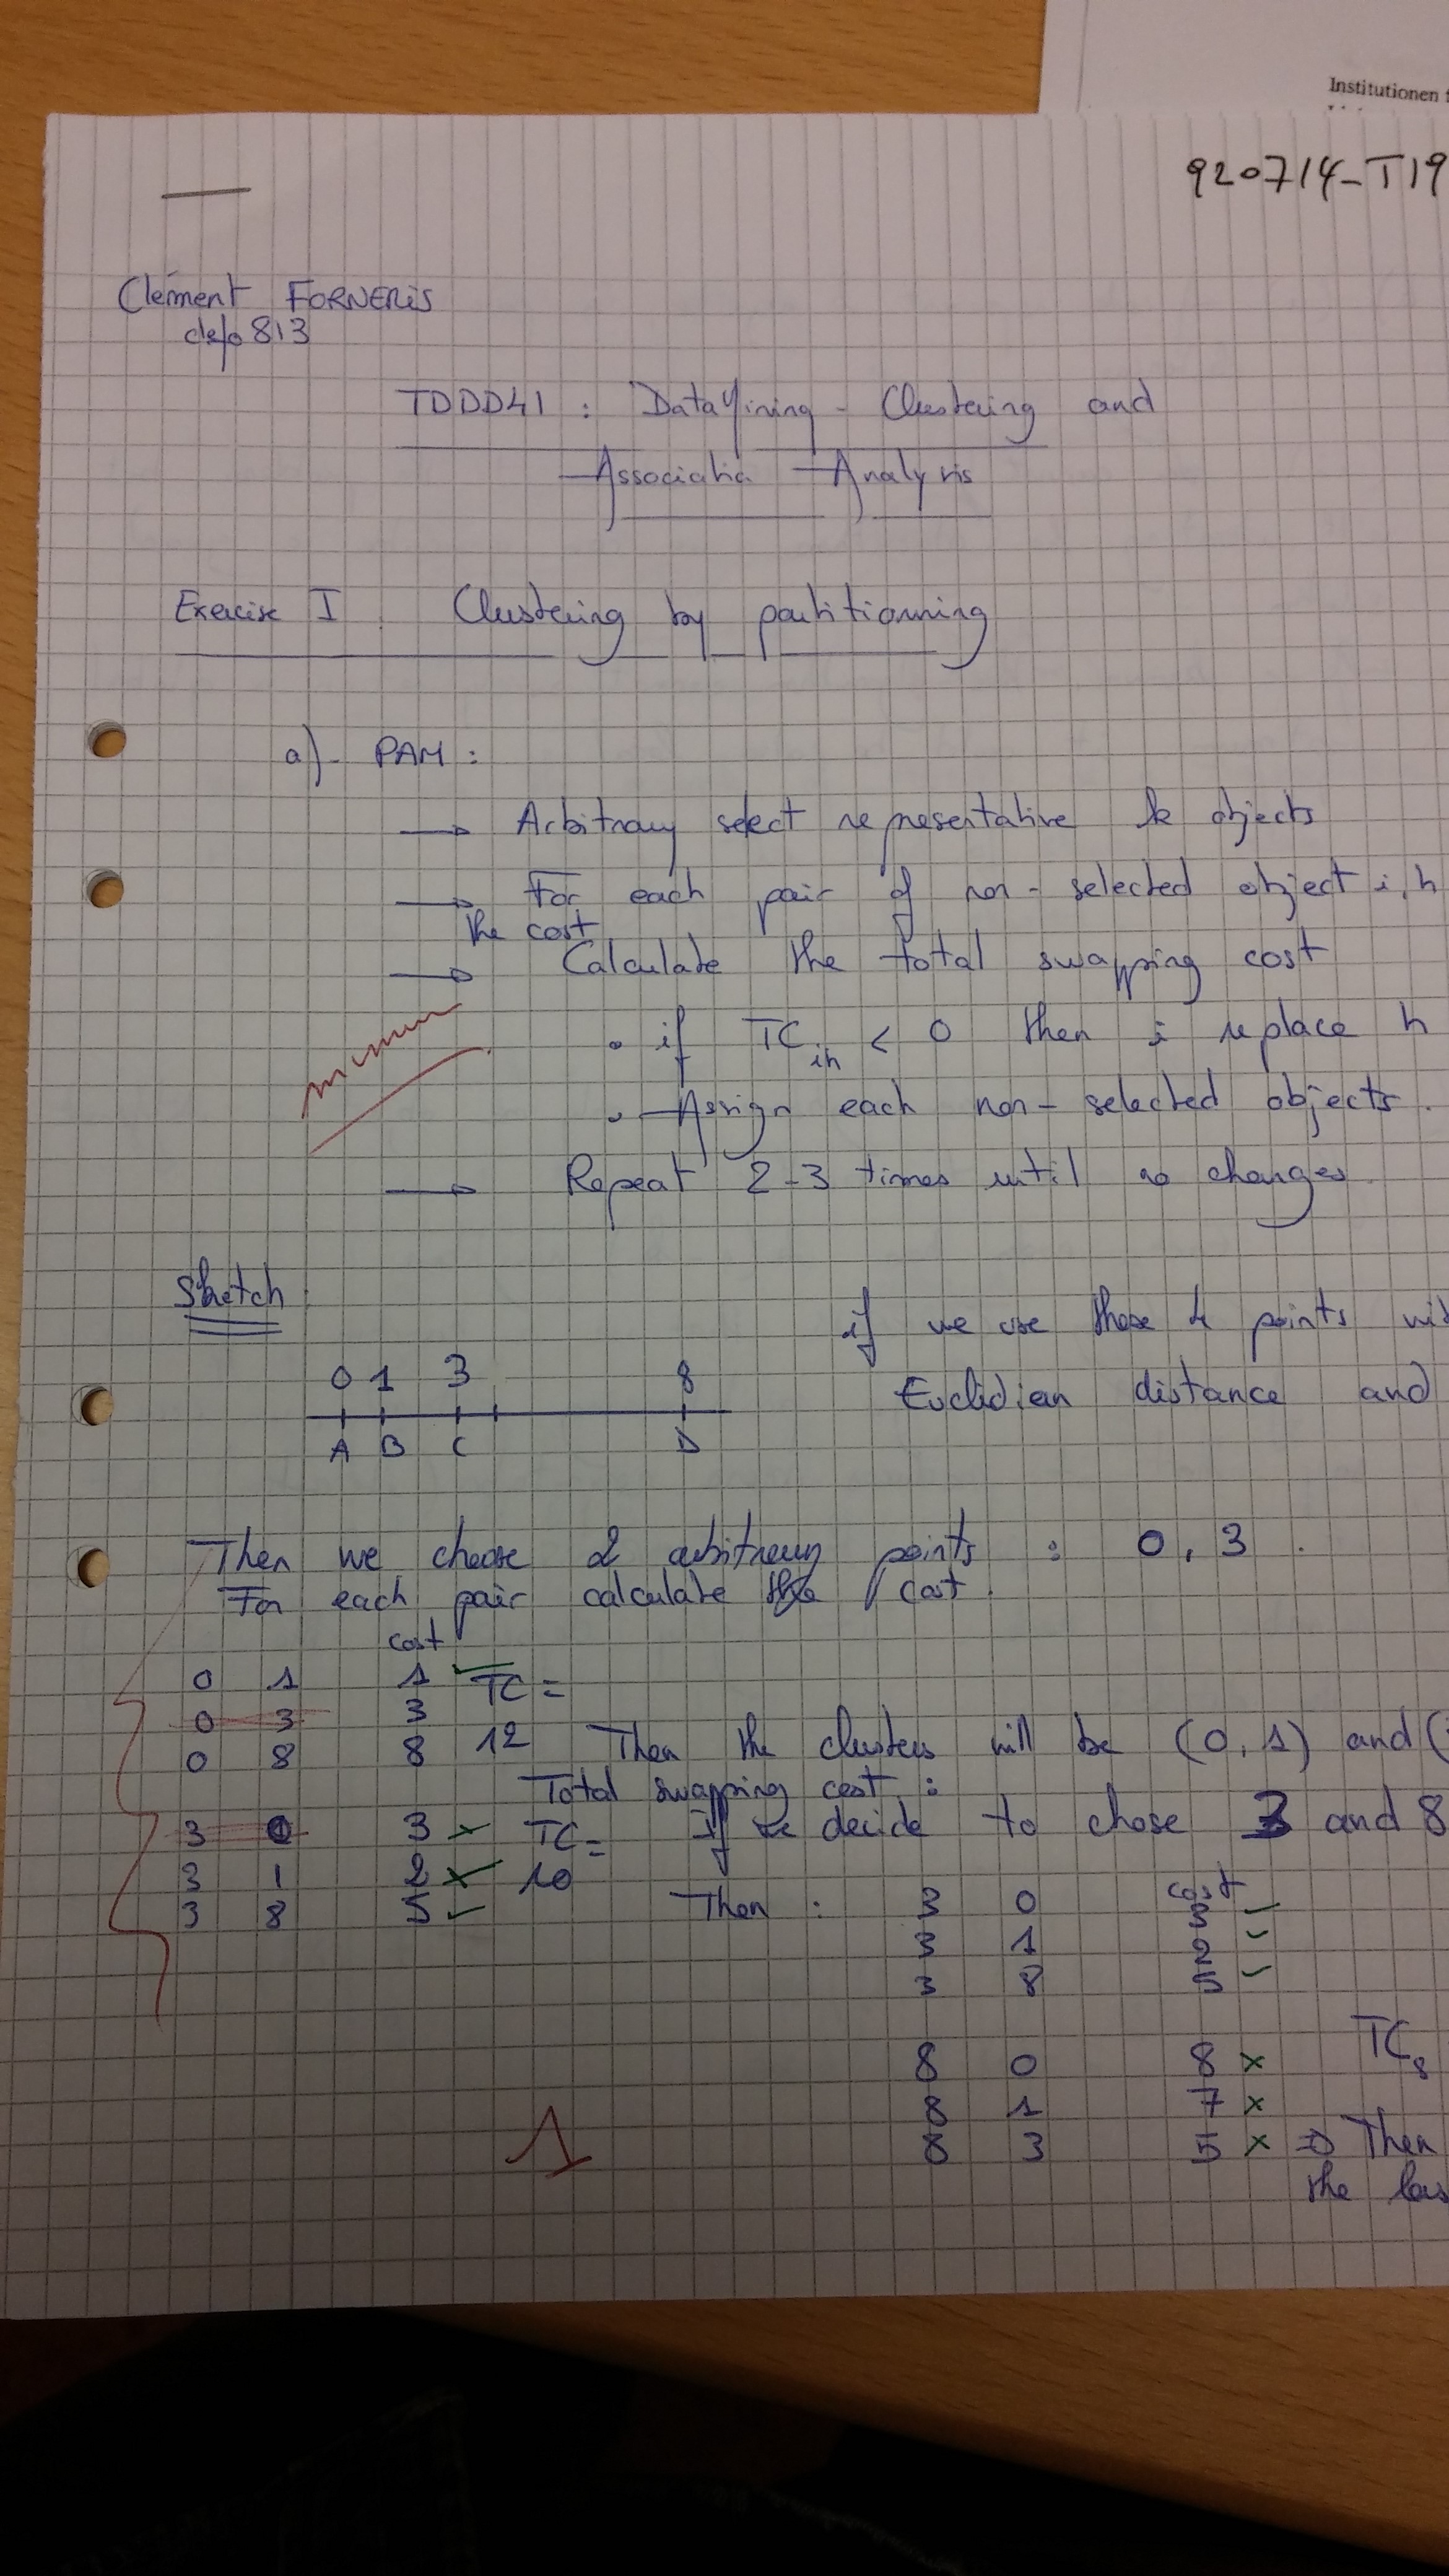 Institutionen f
920714-T19
Clément FORNERIS
clefo 813
TDDD41 : Data Mining - Clustering and
Associatio Analysis
Exercise I Clustering by partitionning
a) - PAM :
→ Arbitrary select representative k objects
→ For each pair of non-selected object i, h
the cost
→ Calculate the total swapping cost
• if TCih < 0 then i replace h
• Assign each non-selected objects.
→ Repeat 2-3 times until no changes
Sketch
if we use those 4 points wi
0 1 3 8
Euclidian distance and
A B C D
Then we choose 2 arbitrary points : 0, 3.
For each pair calculate the cost.
cost
0 1 1 ✓ TC =
0 3 3
0 8 8 12 Then the clusters will be (0, 1) and (
Total swapping cost :
3 0 3 x TC = If we decide to chose 3 and 8
3 1 2 x 10
cost
3 8 5 ✓ Then : 3 0 3 ✓
3 1 2 ✓
3 8 5 ✓
TC8
8 0 8 x
8 1 7 x
8 3 5 x ⇒ Then
the
1